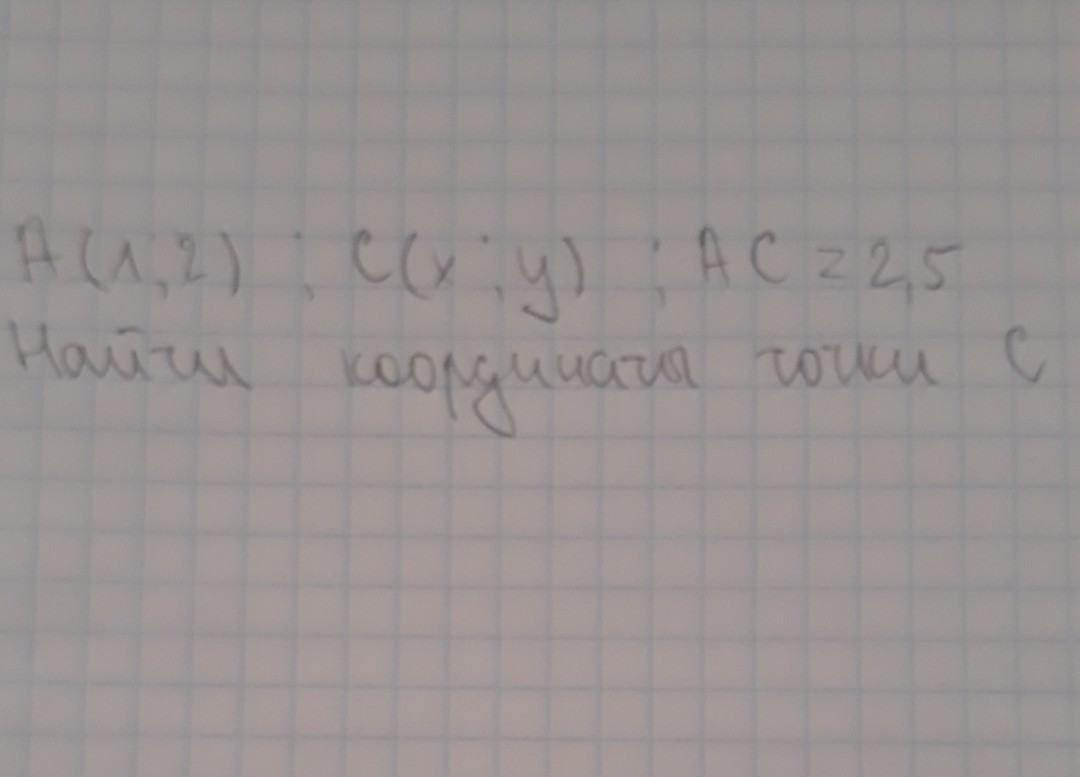 A(1;2) ; C(x;y) ; AC=2,5
Найти координаты точки C